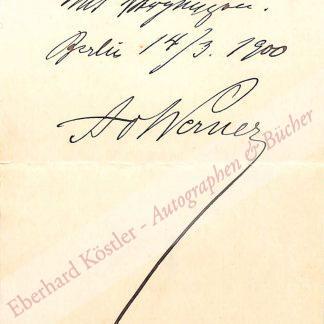 mit
Berlin 14/3. 1900
AvWerner
Eberhard Köstler - Autographen & Bücher